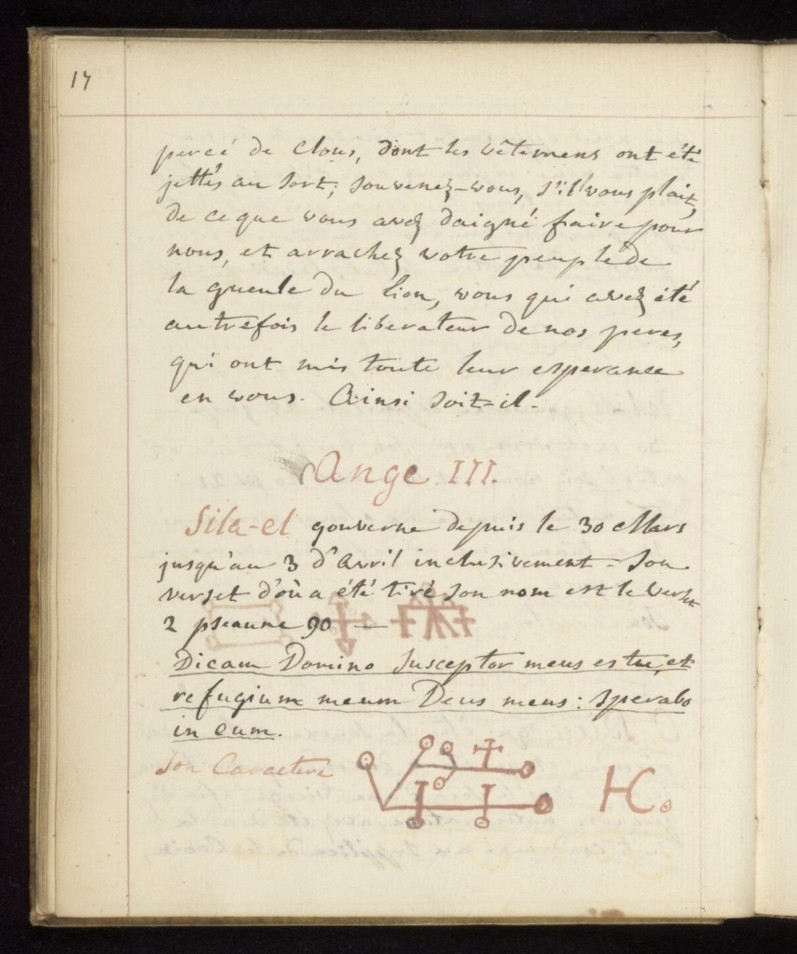 17
percé de clous, dont les vêtemens ont été
jettés au sort; souvenez-vous, s'il vous plait,
de ce que vous avez daigné faire pour
nous, et arrachez votre peuple de
la gueule du lion, vous qui avez été
autrefois le liberateur de nos peres,
qui ont mis toute leur esperance
en vous. Ainsi soit-il.
Ange III.
Sila-el gouverne depuis le 30 Mars
jusqu'au 3 d'Avril inclusivement - Son
verset d'où a été tiré son nom est le verset
2 pseaume 90 —
Dicam Domino susceptor meus es tu, et
refugium meum Deus meus: sperabo
in eum.
Son Caractere